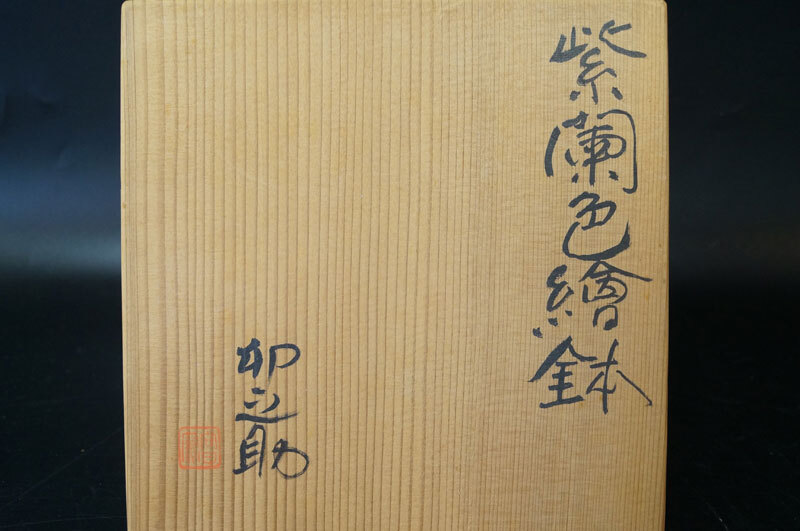 紫蘭色繪鉢
卯之助